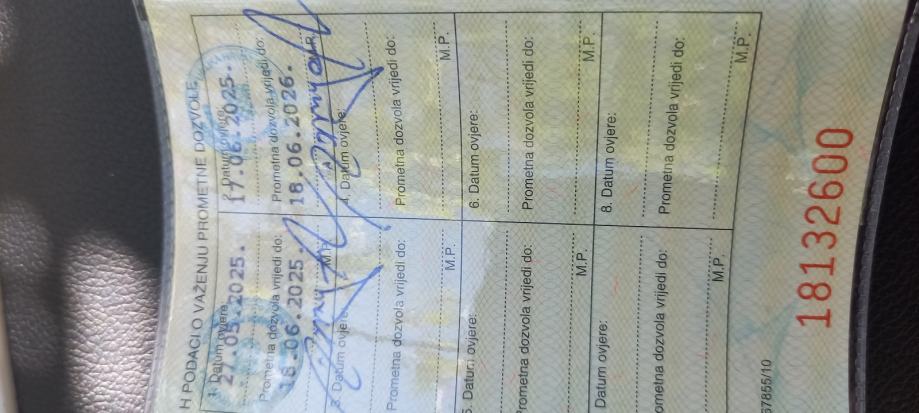 H PODACI O VAŽENJU PROMETNE DOZVOLE
1. Datum ovjere:
27.05.2025.
Prometna dozvola vrijedi do:
18.06.2025.
M.P.
2. Datum ovjere:
17.06.2025.
Prometna dozvola vrijedi do:
18.06.2026.
3. Datum ovjere:
Prometna dozvola vrijedi do:
M.P.
4. Datum ovjere:
Prometna dozvola vrijedi do:
M.P.
5. Datum ovjere:
Prometna dozvola vrijedi do:
M.P.
6. Datum ovjere:
Prometna dozvola vrijedi do:
M.P.
Datum ovjere:
ometna dozvola vrijedi do:
M.P.
8. Datum ovjere:
Prometna dozvola vrijedi do:
M.P.
57855/10
18132600